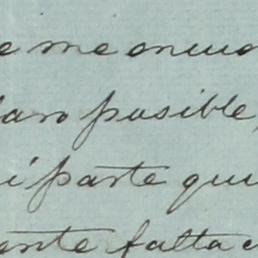 e me encuo
laro posible,
i parte que
ente falta c